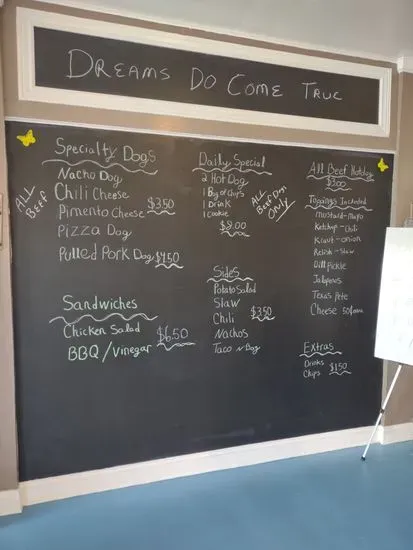 DREAMS DO COME TRUE
Specialty Dogs
ALL BEEF
Nacho Dog
Chili Cheese
Pimento Cheese $3.50
Pizza Dog
Pulled Pork Dog $4.50
Sandwiches
Chicken Salad $6.50
BBQ/Vinegar
Daily Special
2 Hot Dog
1 Bag of Chips
1 Drink
1 Cookie
$8.00
ALL Beef Dogs ONLY
Sides
Potato Salad
Slaw
Chili $3.50
Nachos
Taco N Bag
All Beef Hotdog
$3.00
Toppings Included
Mustard-Mayo
Ketchup-Chili
Kraut-onion
Relish-Slaw
Dill Pickle
Jalapenos
Texas Pete
Cheese 50¢
Extras
Drinks
Chips $1.50